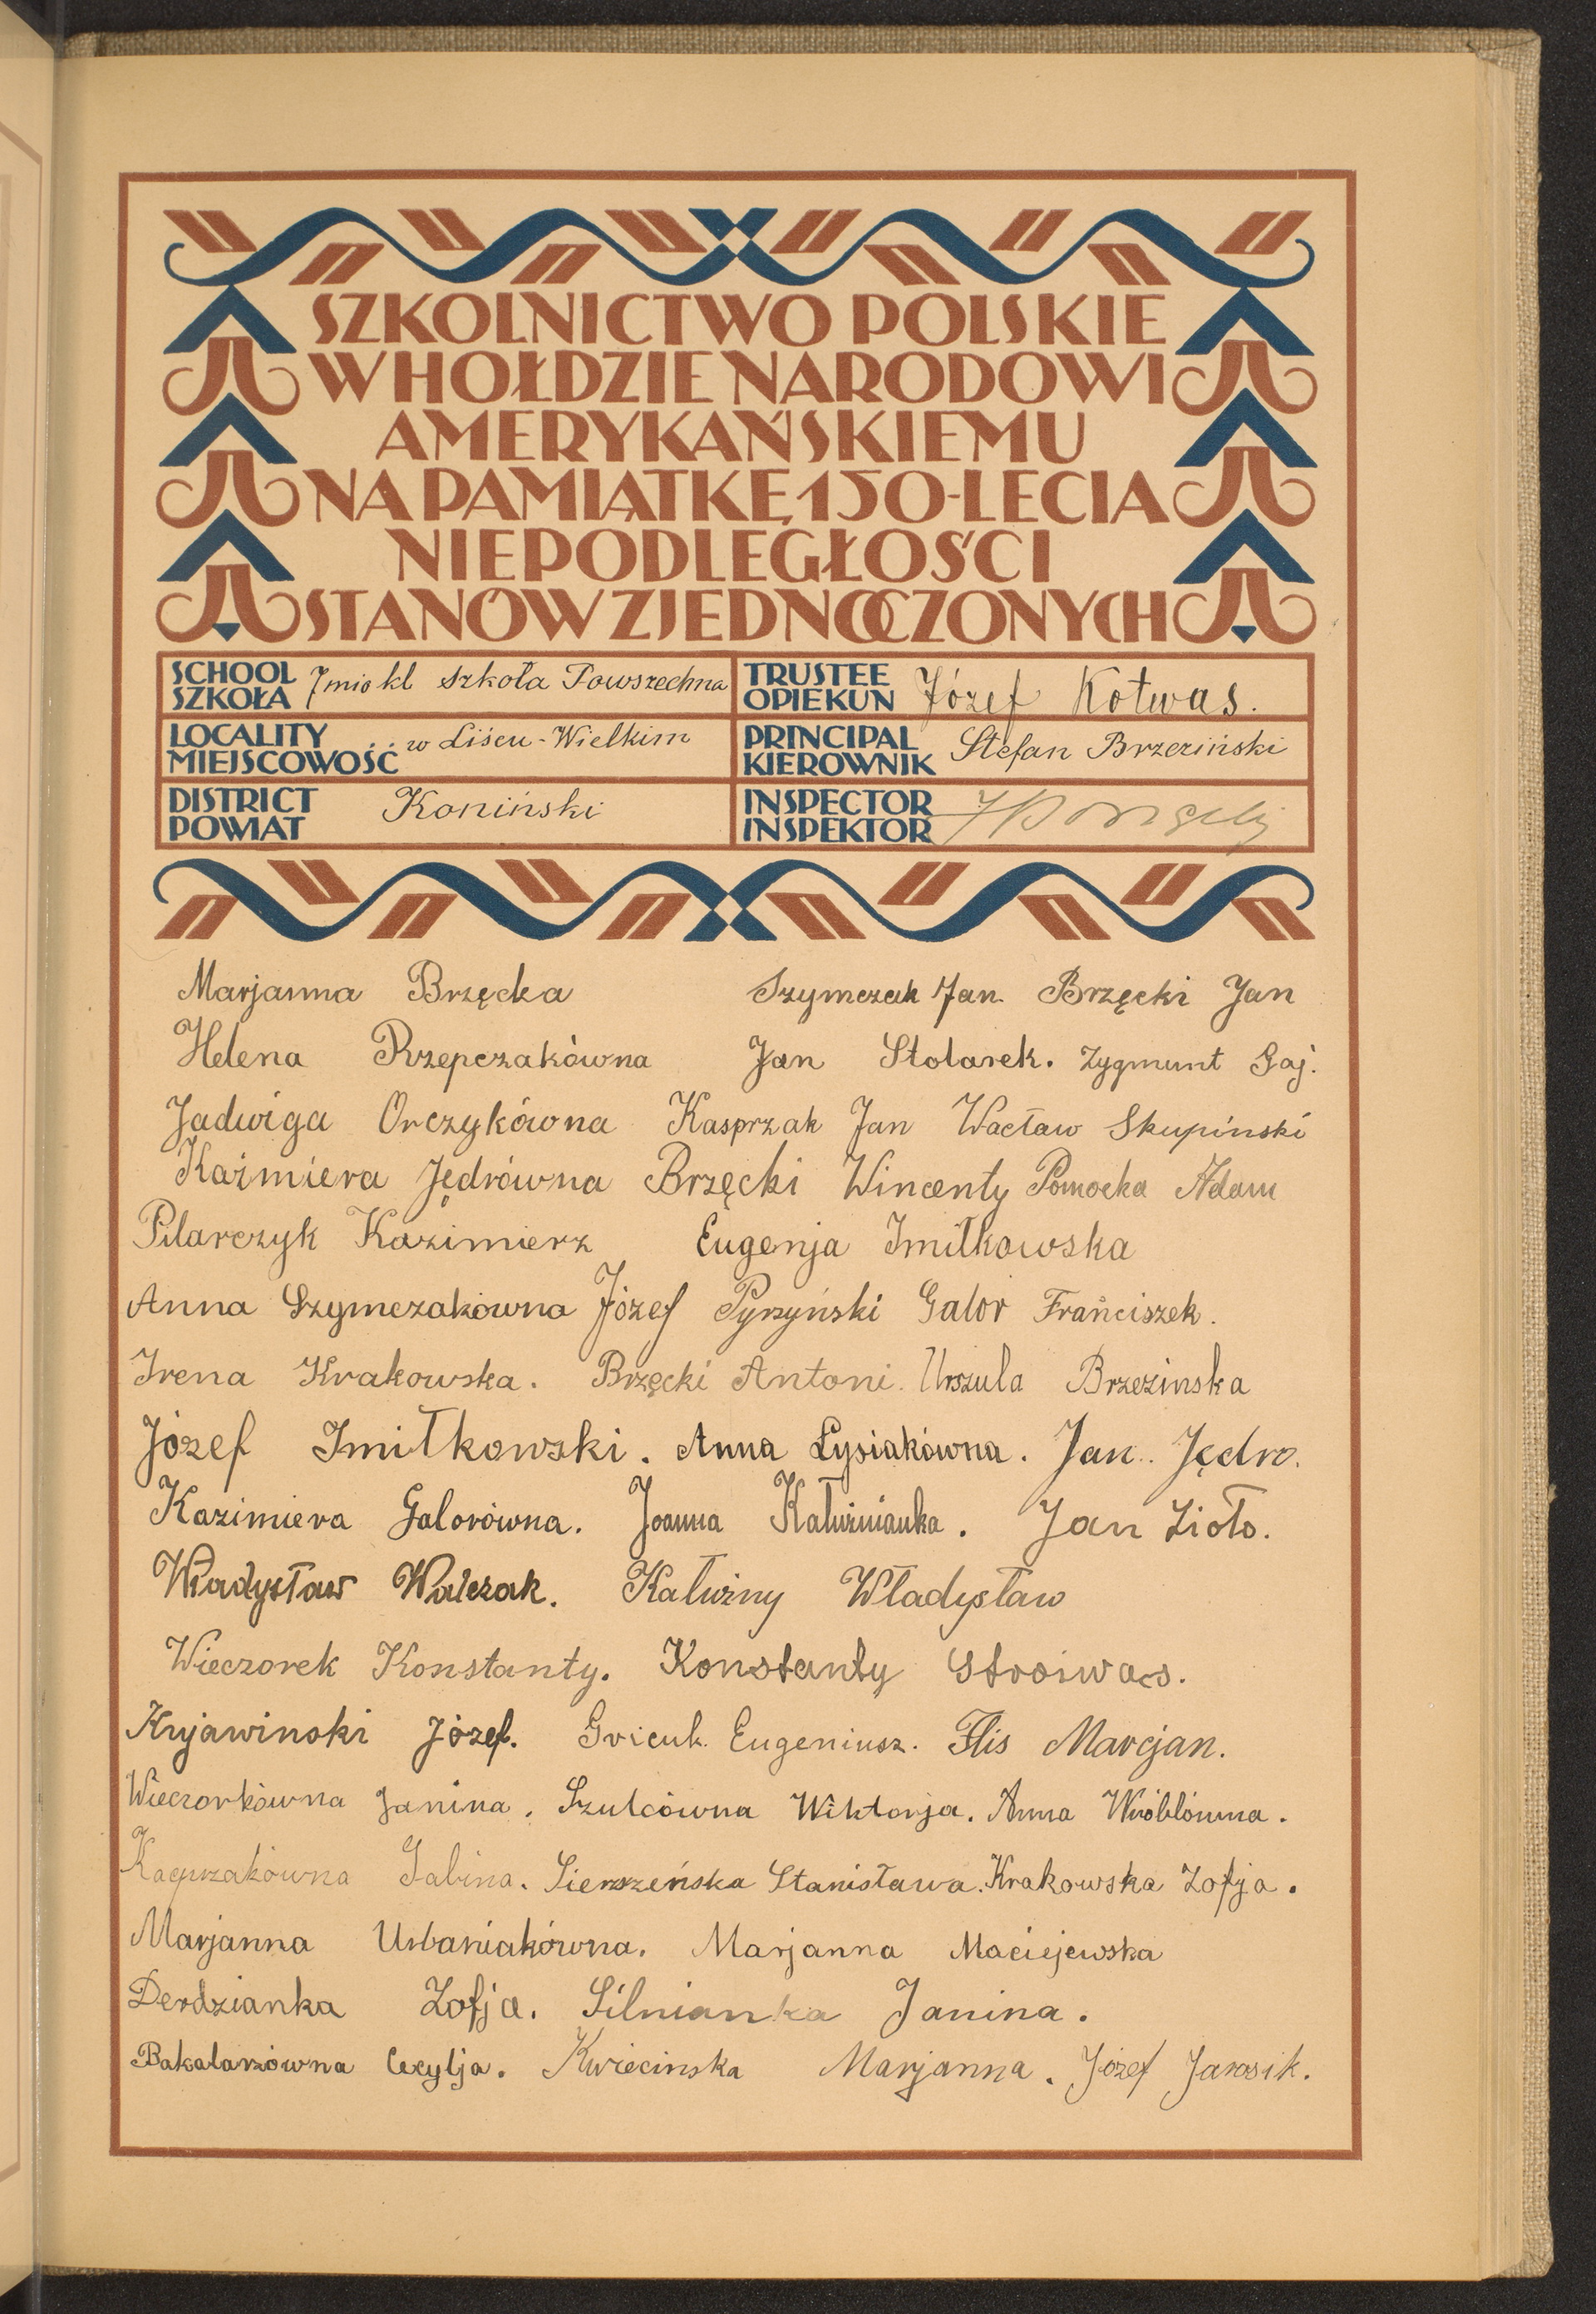 SZKOLNICTWO POLSKIE
W HOŁDZIE NARODOWI
AMERYKAŃSKIEMU
NA PAMIĄTKĘ 150-LECIA
NIEPODLEGŁOŚCI
STANÓW ZJEDNOCZONYCH
SCHOOL
SZKOŁA
7mio kl szkoła Powszechna
TRUSTEE
OPIEKUN
Józef Kotwas.
LOCALITY
MIEJSCOWOŚĆ
w Liścu-Wielkim
PRINCIPAL
KIEROWNIK
Stefan Brzeziński
DISTRICT
POWIAT
Koniński
INSPECTOR
INSPEKTOR
Marjanna Brzęcka Szymczak Jan. Brzęcki Jan
Helena Rzepczakówna Jan Stolarek. Zygmunt Gaj.
Jadwiga Orczykówna Kasprzak Jan Wacław Skupiński
Kaźmiera Jędrówna Brzęcki Wincenty Pomocka Adam
Pilarczyk Kazimierz Eugenja Imiłkowska
Anna Szymczakówna Józef Pyrzyński Galor Franciszek.
Irena Krakowska. Brzęcki Antoni. Urszula Brzezinska
Józef Imiłkowski. Anna Łysiakówna. Jan. Jędro.
Kazimiera Galorówna. Joanna Kałużnianka. Jan Zioło.
Władysław Walczak. Kałużny Władysław
Wieczorek Konstanty. Konstanty Stroiwąs.
Kujawinski Józef. Eugeniusz. Flis Marcjan.
Wieczorkówna Janina. Szulcówna Wiktorja. Anna Wróblówna.
Kacprzakówna Sabina. Sierszeńska Stanisława. Krakowska Zofja.
Marjanna Urbaniakówna. Marjanna Maciejewska
Derdzianka Zofja. Silnianka Janina.
Bakalarzówna Cecylja. Kwiecinska Marjanna. Józef Jarosik.